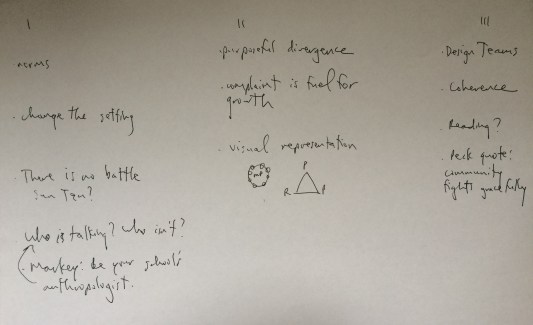 I
norms
. Change the setting
. There is no battle
Sun Tzu?
Who is talking? Who isn't?
. Mackey: be your school's
anthropologist.
II
. purposeful divergence
. complaint is fuel for
growth
. visual representation
P
R P
III
. Design Teams
. Coherence
. Reading?
. Peck quote:
community
fights gracefully